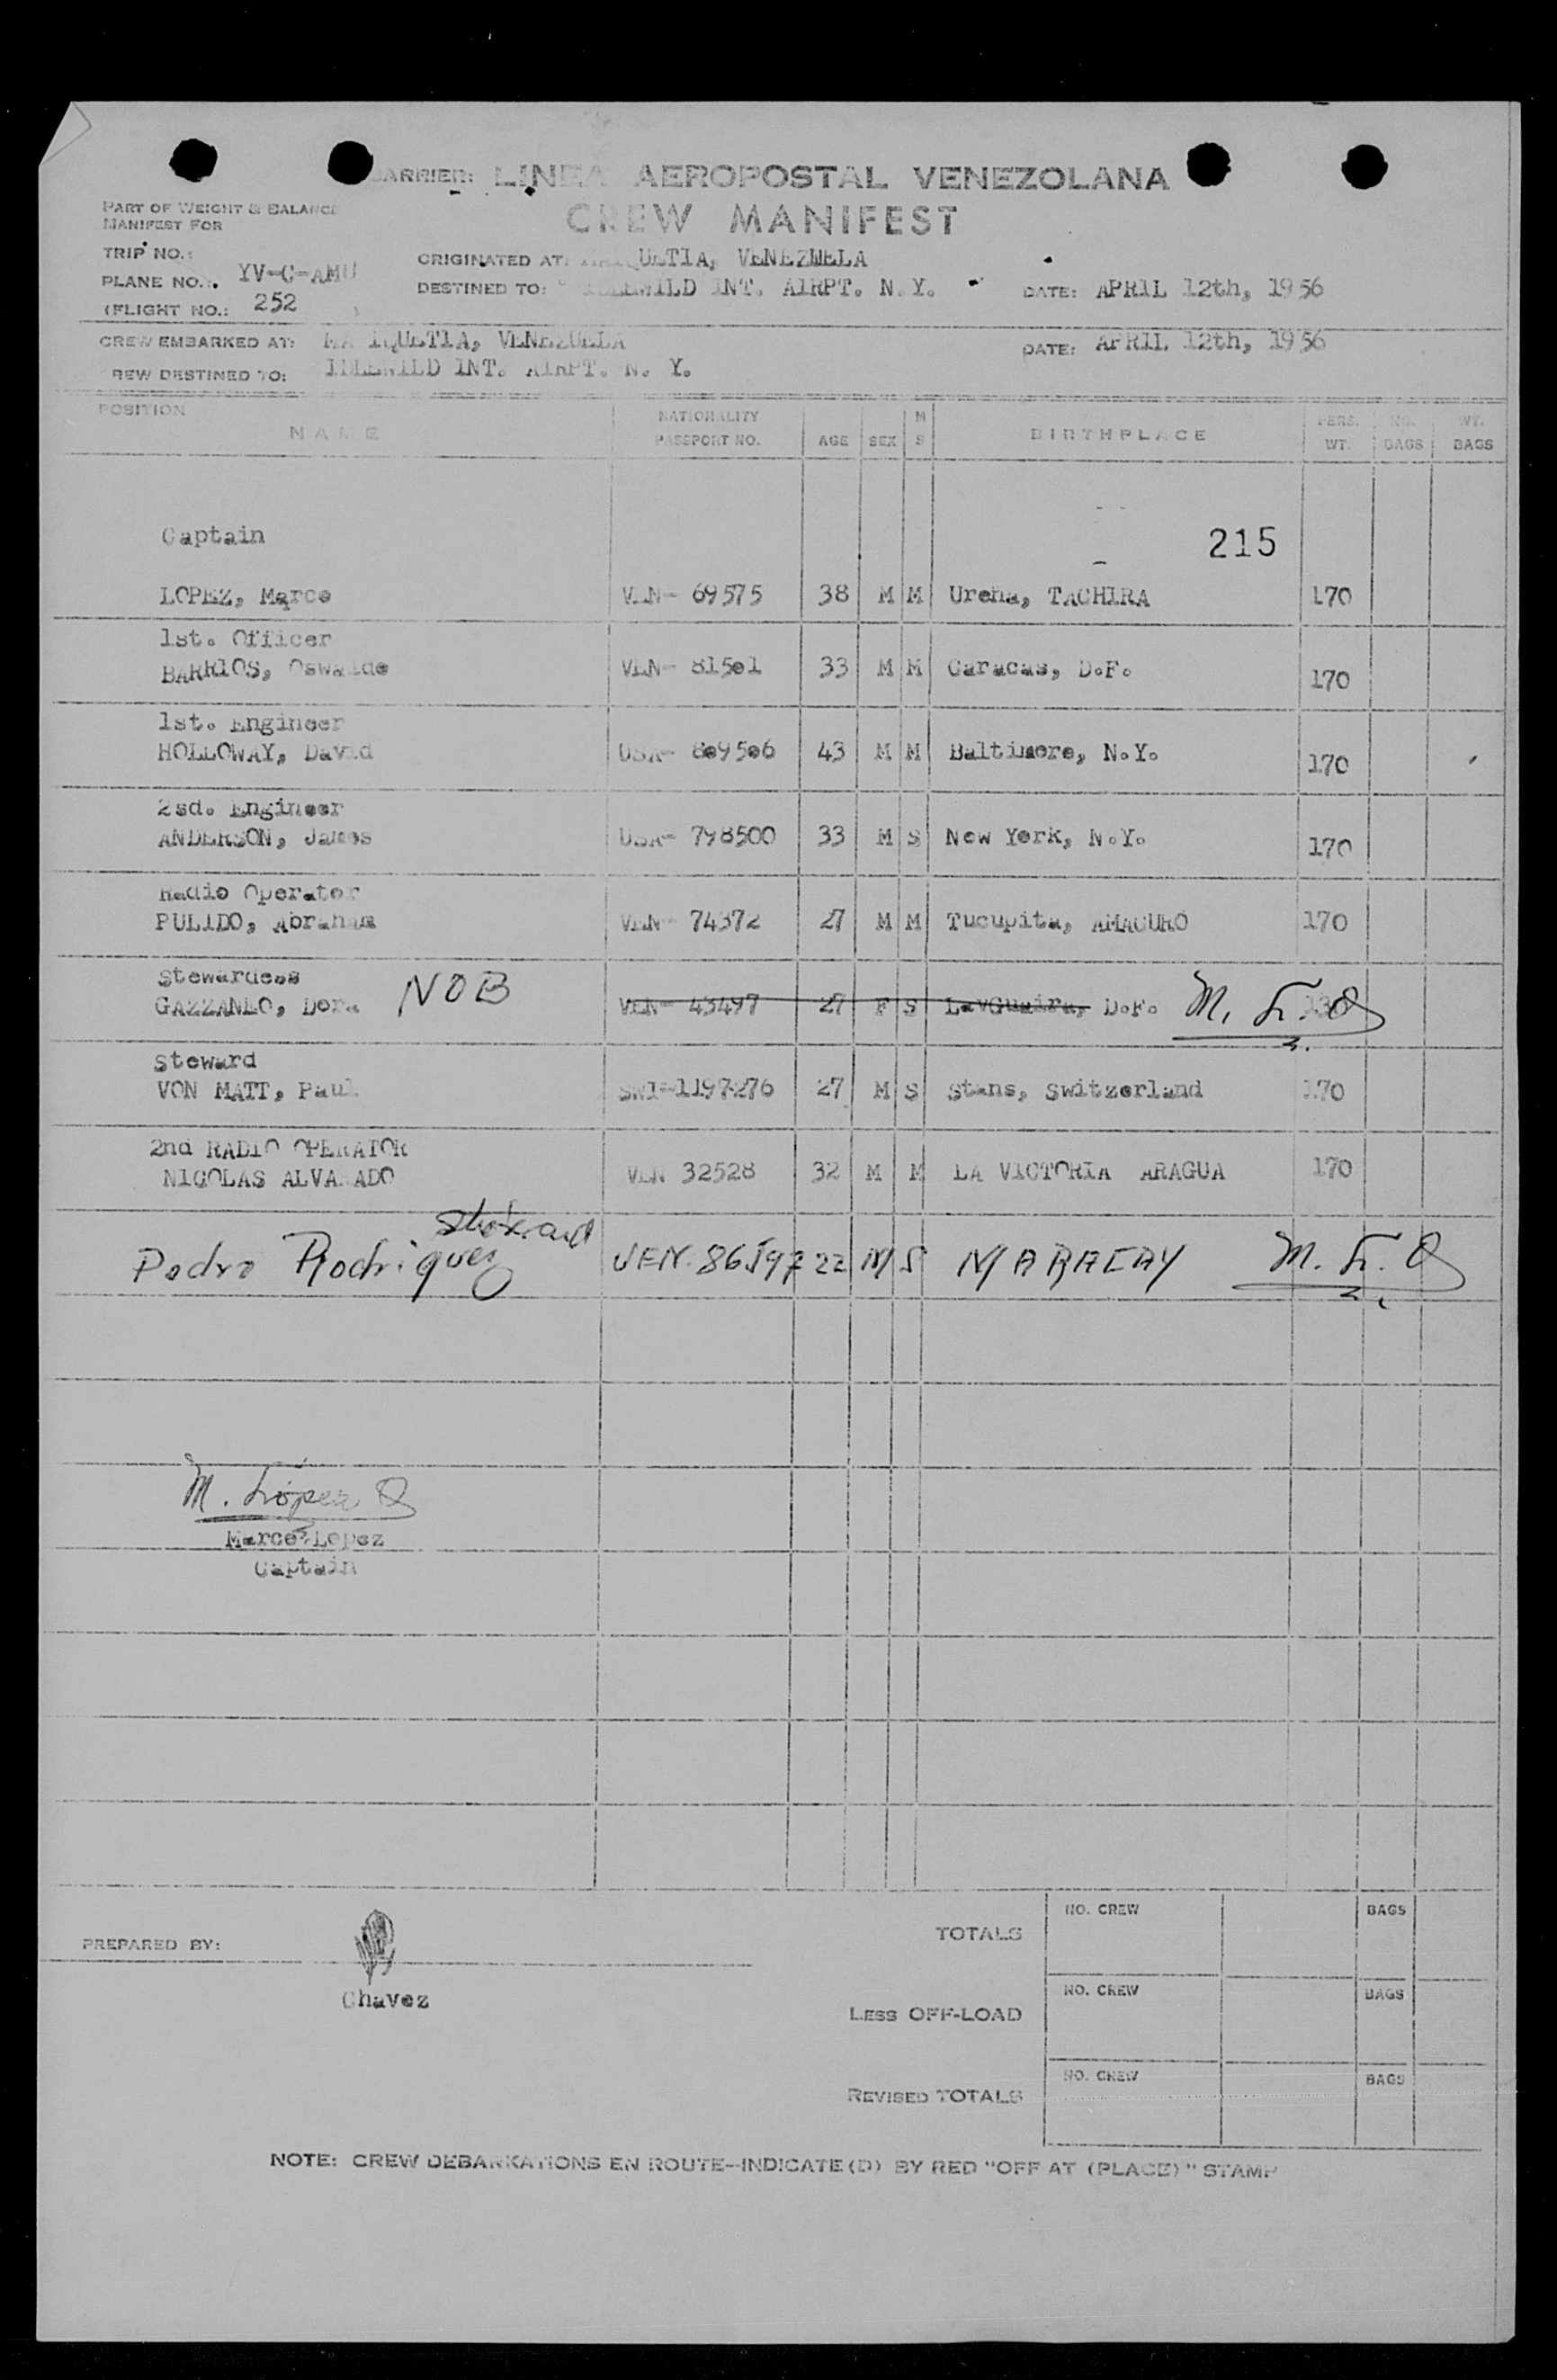 CARRIER: LINEA AEROPOSTAL VENEZOLANA
CREW MANIFEST
PART OF WEIGHT & BALANCE
MANIFEST FOR
TRIP NO.:
PLANE NO.: YV-C-AMU
(FLIGHT NO.: 252 )
ORIGINATED AT: MAIQUETIA, VENEZUELA
DESTINED TO: IDLEWILD INT. AIRPT. N.Y. DATE: APRIL 12th, 1956
CREW EMBARKED AT: MAIQUETIA, VENEZUELA DATE: APRIL 12th, 1956
CREW DESTINED TO: IDLEWILD INT. AIRPT. N. Y.
POSITION NAME NATIONALITY PASSPORT NO. AGE SEX M S BIRTHPLACE PERS. WT. NO. BAGS WT. BAGS
Captain 215
LOPEZ, Marco VEN- 69575 38 M M Ureña, TACHIRA 170
1st. Officer
BARRIOS, Oswaldo VEN- 81501 33 M M Caracas, D.F. 170
1st. Engineer
HOLLOWAY, David USA- 809506 43 M M Baltimore, N.Y. 170
2sd. Engineer
ANDERSON, James USA- 798500 33 M S New York, N.Y. 170
Radio Operator
PULIDO, Abraham VEN- 74372 27 M M Tucupita, AMACURO 170
Stewardess
GAZZANEO, Dora NOB VEN- 43497 27 F S La Guaira, D.F. M. L. O
Steward
VON MATT, Paul SWI-1197276 27 M S Stans, Switzerland 170
2nd RADIO OPERATOR
NICOLAS ALVARADO VEN 32528 32 M M LA VICTORIA ARAGUA 170
Steward
Pedro Rodriguez VEN. 86597 22 M S MARACAY M. L. O
M. López O
Marco Lopez
Captain
PREPARED BY:
Chavez
TOTALS NO. CREW BAGS
LESS OFF-LOAD NO. CREW BAGS
REVISED TOTALS NO. CREW BAGS
NOTE: CREW DEBARKATIONS EN ROUTE—INDICATE (D) BY RED "OFF AT (PLACE)" STAMP